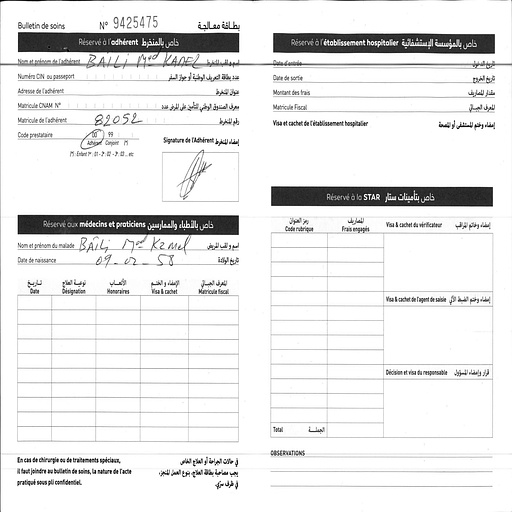 Bulletin de soins N° 9425475 بطاقة معالجة
Réservé à l'adhérent خاص بالمنخرط
Nom et prénom de l'adhérent BAILI Med KAMEL إسم و لقب المنخرط
Numéro CIN ou passeport عدد بطاقة التعريف الوطنية أو جواز السفر
Adresse de l'adhérent عنوان المنخرط
Matricule CNAM N° معرف الصندوق الوطني للتأمين على المرض عدد
Matricule de l'adhérent 82052 رقم المنخرط
Code prestataire 00 99 Signature de l'Adhérent إمضاء المنخرط
Adhérent Conjoint (*)
(*) : Enfant 1er : 01 - 2è : 02 - 3è : 03 ... etc
Réservé aux médecins et praticiens خاص بالأطباء والممارسين
Nom et prénom du malade BAILI Med Kamel اسم و لقب المريض
Date de naissance 09-02-58 تاريخ الولادة
تاريخ نوعية العلاج الأتعاب الإمضاء و الختم المعرف الجبائي
Date Désignation Honoraires Visa & cachet Matricule fiscal
En cas de chirurgie ou de traitements spéciaux,
il faut joindre au bulletin de soins, la nature de l'acte
pratiqué sous pli confidentiel.
في حالات الجراحة أو العلاج الخاص
يجب مصاحبة بطاقة العلاج، بنوع العمل المنجز،
في ظرف سري.
Réservé à l'établissement hospitalier خاص بالمؤسسة الإستشفائية
Date d'entrée تاريخ الدخول
Date de sortie تاريخ الخروج
Montant des frais مقدار المصاريف
Matricule Fiscal المعرف الجبائي
Visa et cachet de l'établissement hospitalier إمضاء وختم المستشفى أو المصحة
Réservé à la STAR خاص بتأمينات ستار
رمز العنوان المصاريف Visa & cachet du vérificateur إمضاء وخاتم المراقب
Code rubrique Frais engagés
Visa & cachet de l'agent de saisie إمضاء وختم الضبط الآلي
Décision et visa du responsable قرار وإمضاء المسؤول
Total الجملة
OBSERVATIONS